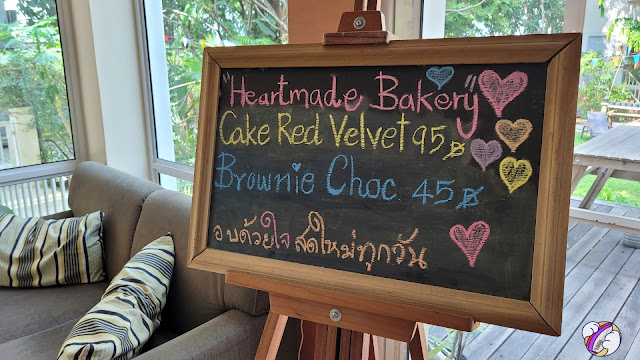 "Heartmade Bakery"
Cake Red Velvet 95฿
Brownie Choc 45฿
อบด้วยใจ สดใหม่ทุกวัน